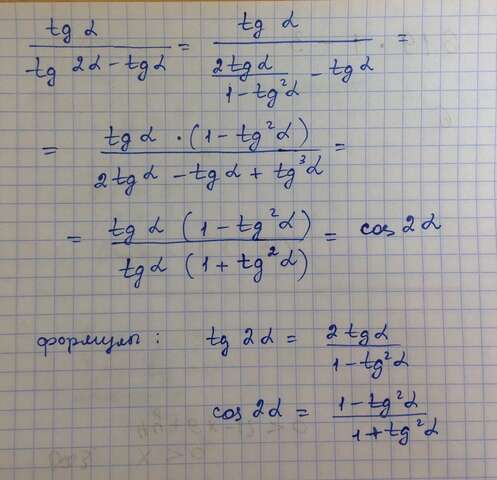 tg α / (tg 2α - tgα) = tg α / (2tgα / (1-tg²α) - tgα) =
= tgα · (1-tg²α) / (2tgα - tgα + tg³α) =
= tgα (1-tg²α) / (tgα (1+tg²α)) = cos2α
формулы: tg 2α = 2tgα / (1-tg²α)
cos2α = (1-tg²α) / (1+tg²α)